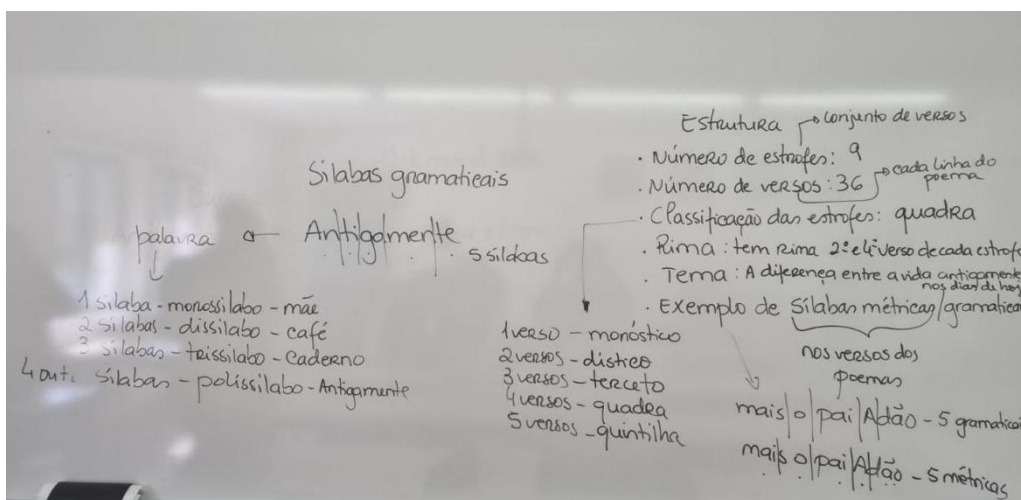 Sílabas gramaticais
palavra ← Antigamente
5 sílabas
1 sílaba - monossílabo - mãe
2 sílabas - dissílabo - café
3 sílabas - trissílabo - caderno
4 ou+. sílabas - polissílabo - Antigamente
Estrutura → conjunto de versos
· Número de estrofes: 9
· Número de versos: 36 → cada linha do poema
· Classificação das estrofes: quadra
· Rima: tem rima 2º e 4º verso de cada estrofe
· Tema: A diferença entre a vida antigamente
nos dias de hoje
· Exemplo de sílabas métricas/gramaticais
1 verso - monóstico
2 versos - dístico
3 versos - terceto
4 versos - quadra
5 versos - quintilha
nos versos dos
poemas
mais|o|pai|A|dão - 5 gramaticais
mais|o|pai|A|dão - 5 métricas